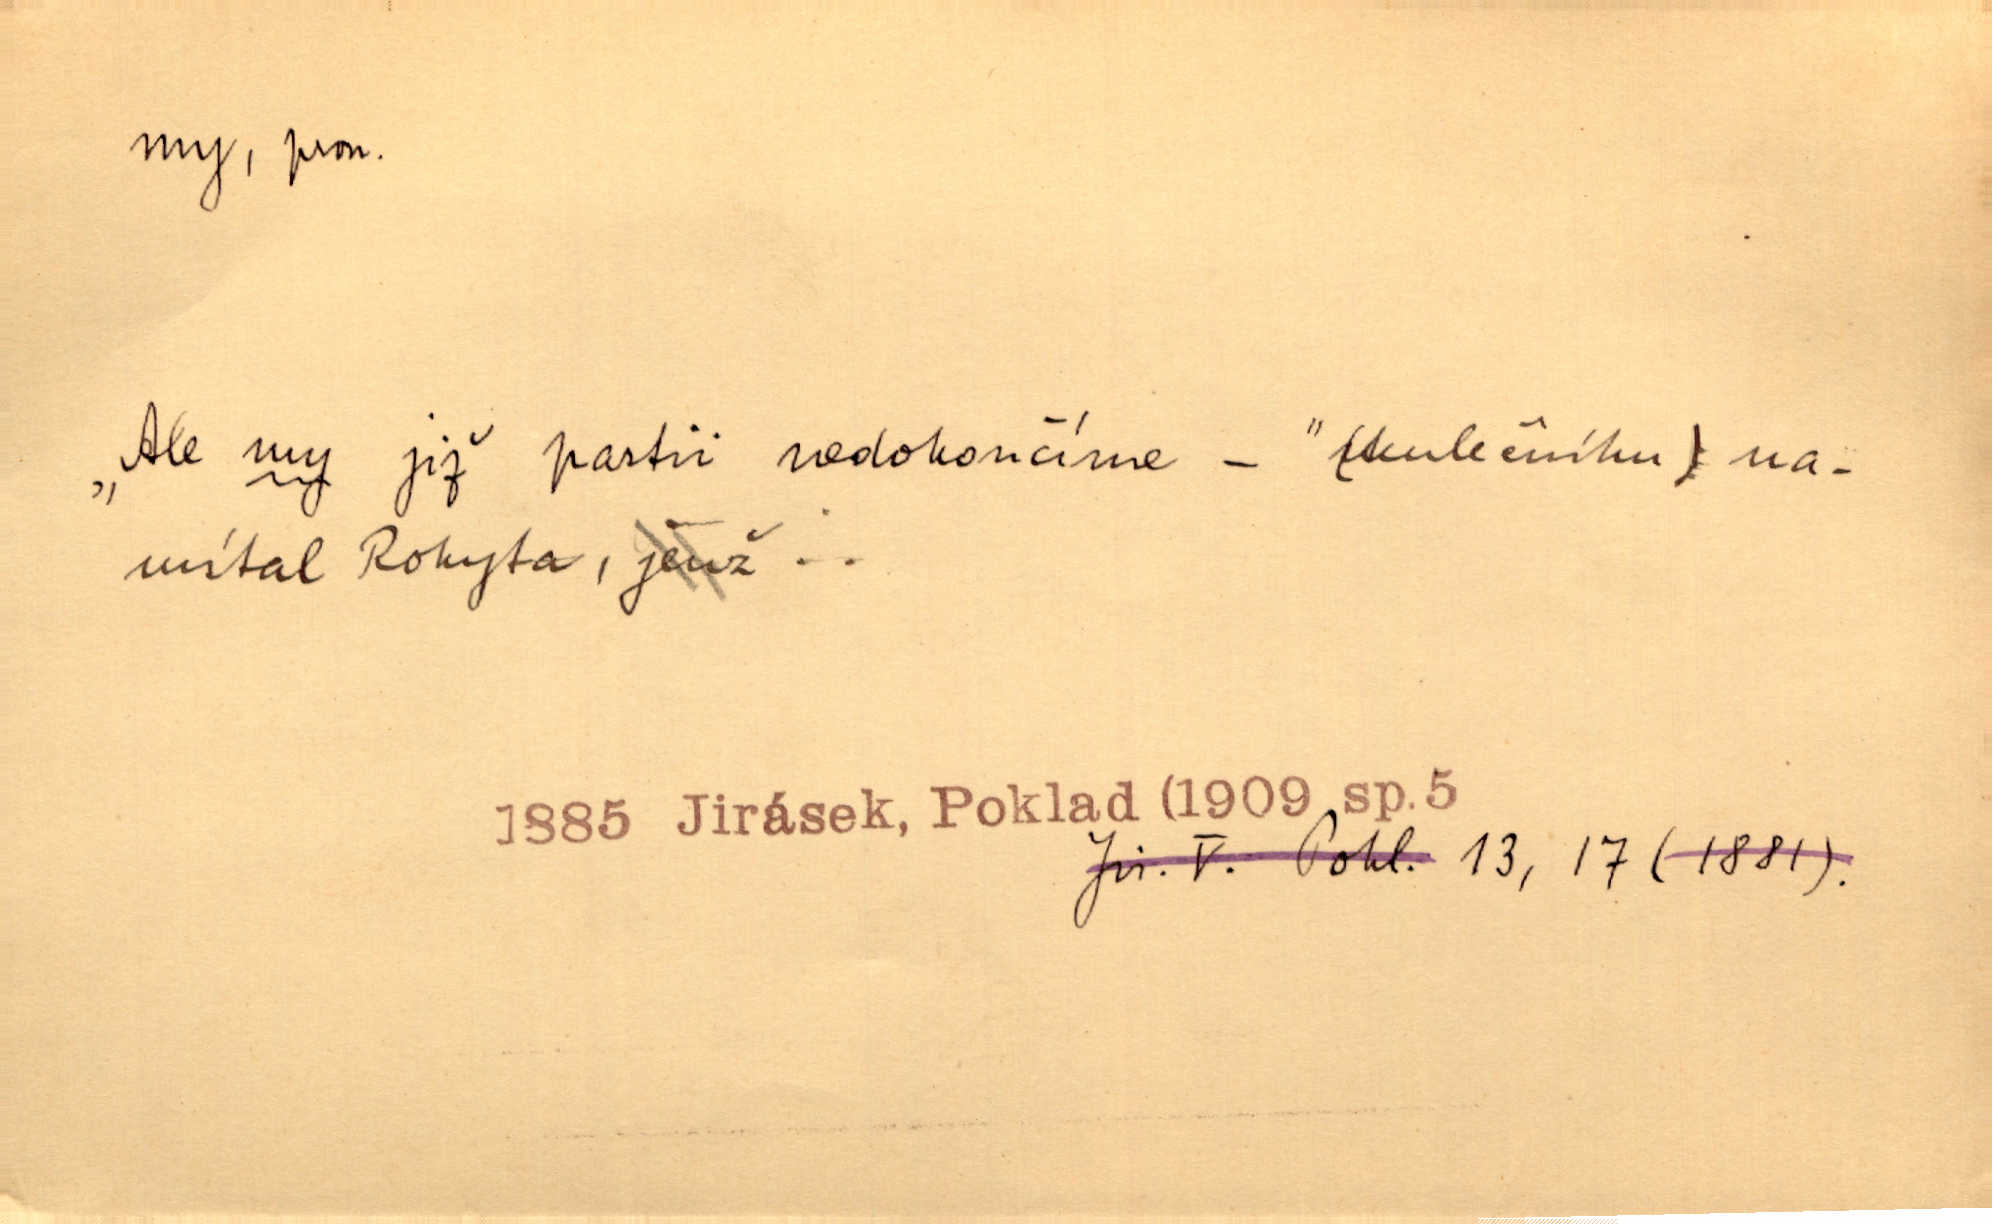 my, pron.
„Ale my již partii nedokončíme – " (kulečníku) na-
mítal Rokyta, jenž ...
1885 Jirásek, Poklad (1909 sp.5
Jir. V. Pokl. 13, 17 (1881).